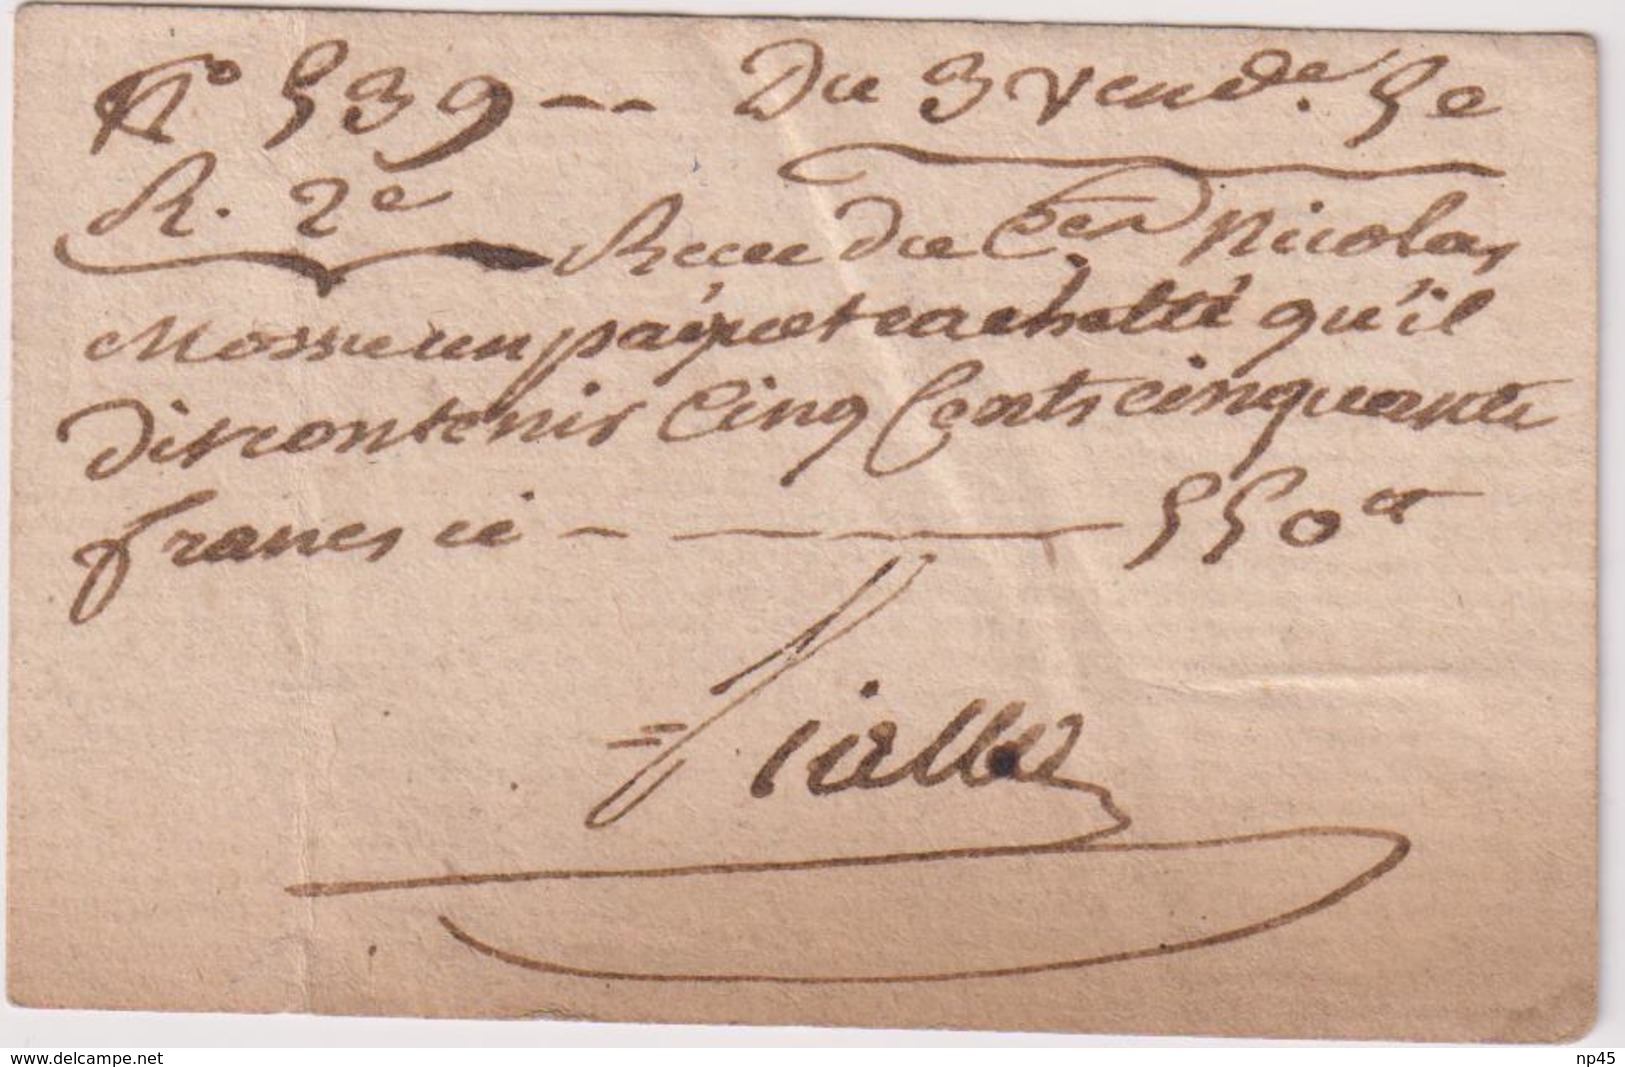 N° 539 -- Du 3 vend.re 5e
R. 2e
Recu du Cen Nicolas
Mosse un paquet cachetté qu'il
dit contenir Cinq Cents cinquante
francs ci - — 550
www.delcampe.net
np45